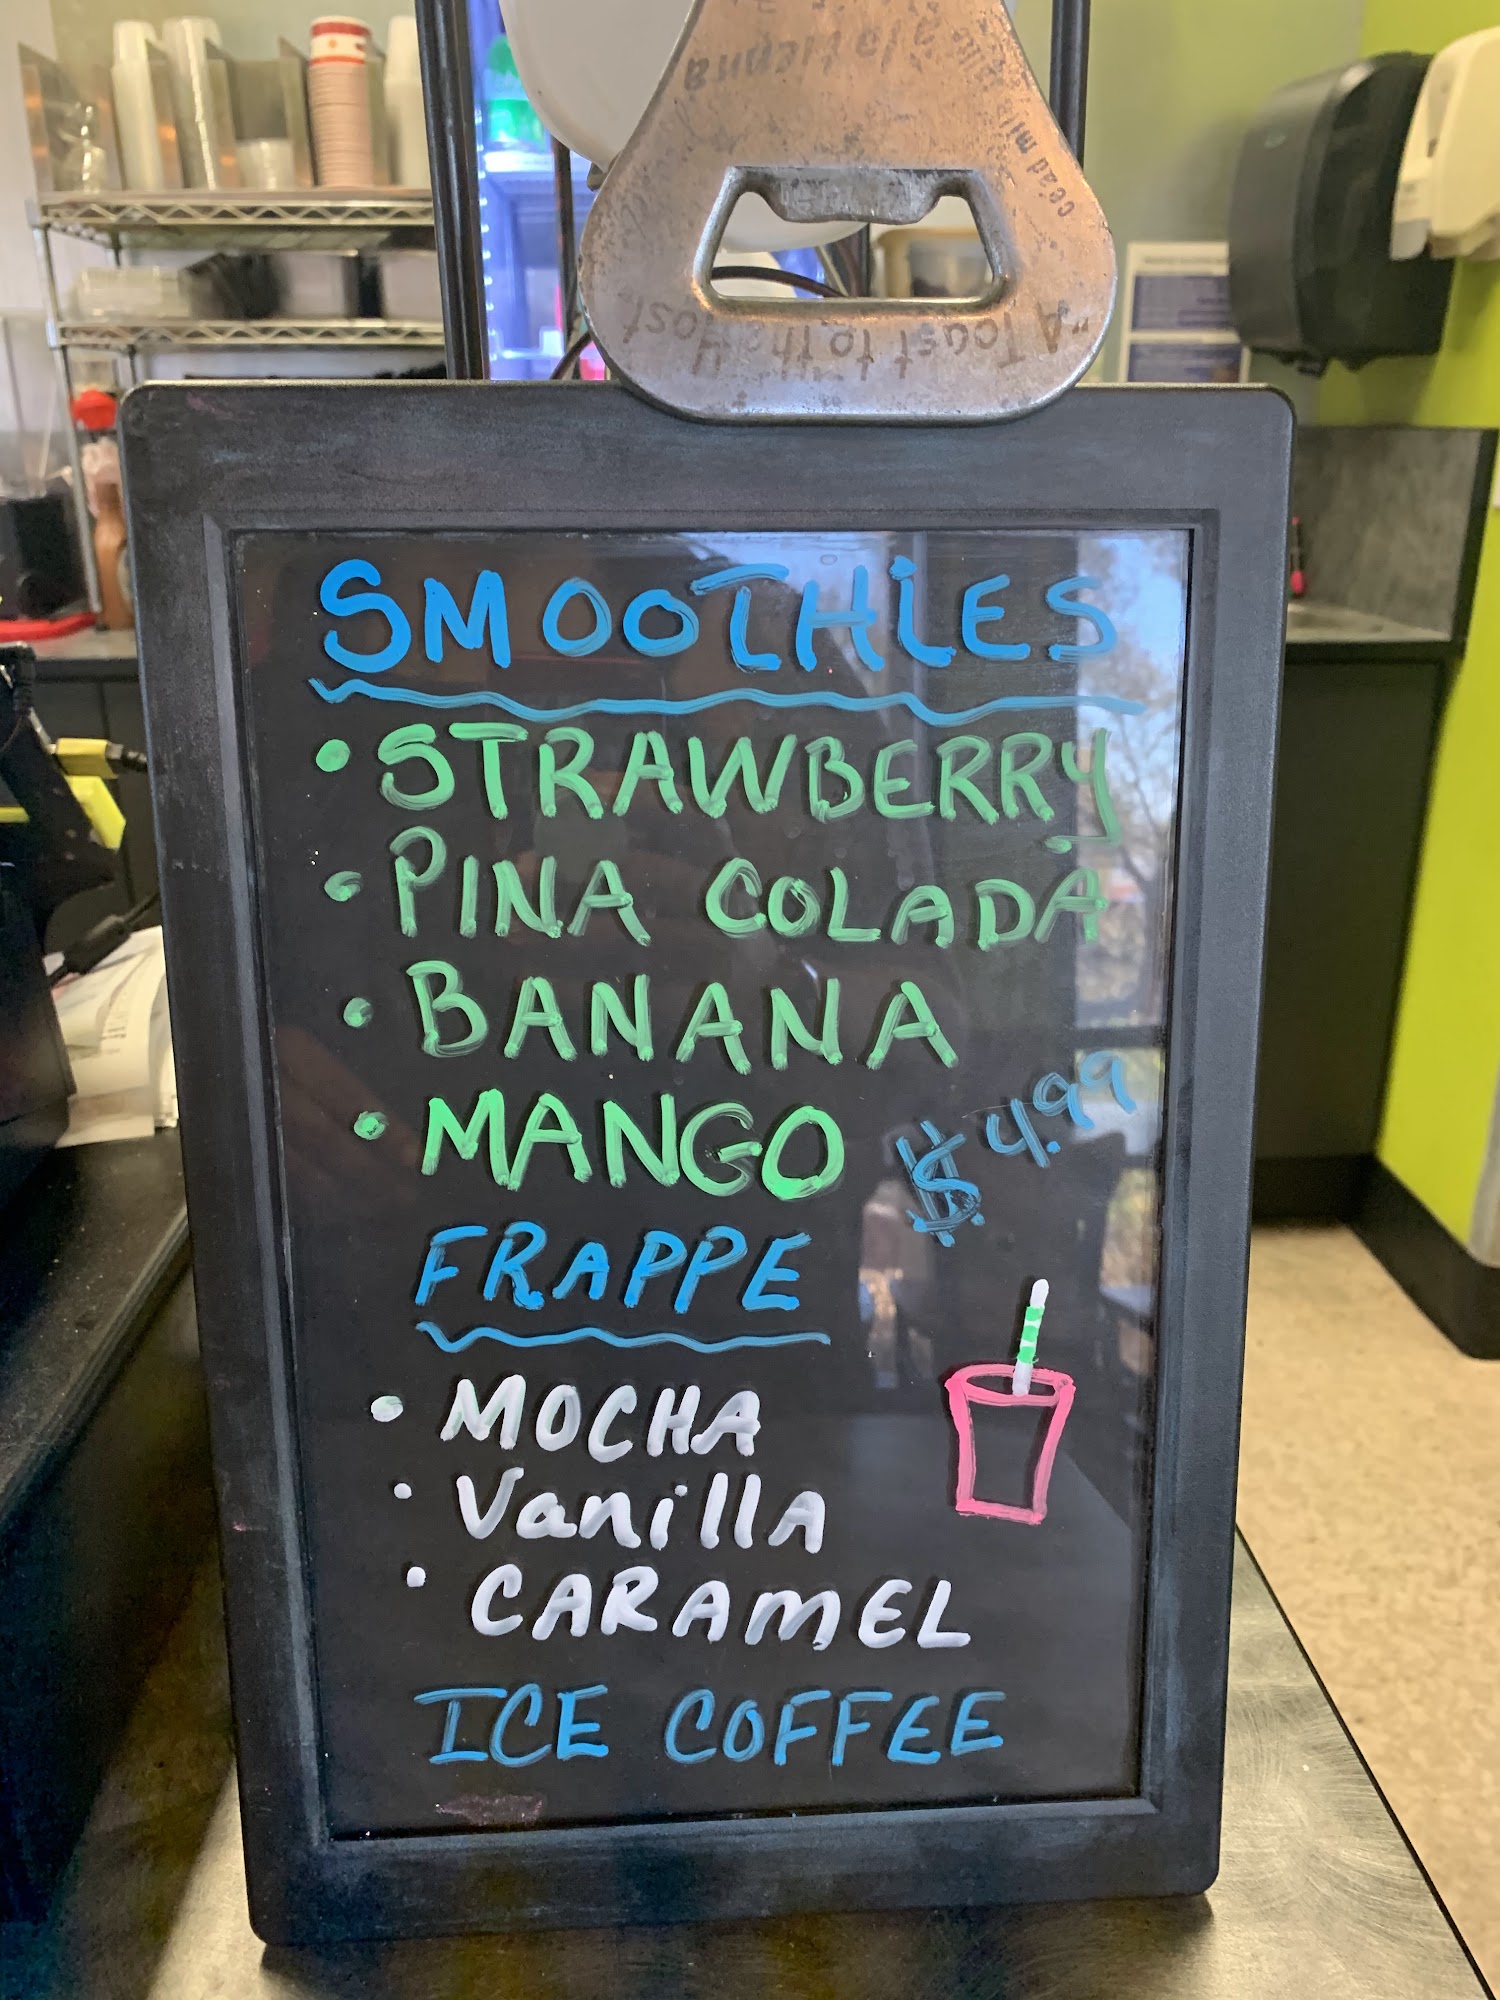 "A Toast to the Host
céad míle
SMOOTHiES
• STRAWBERRY
• PINA COLADA
• BANANA
• MANGO
$4.99
FRAPPE
• MOCHA
• VanillA
• CARAmEL
ICE COFFEE